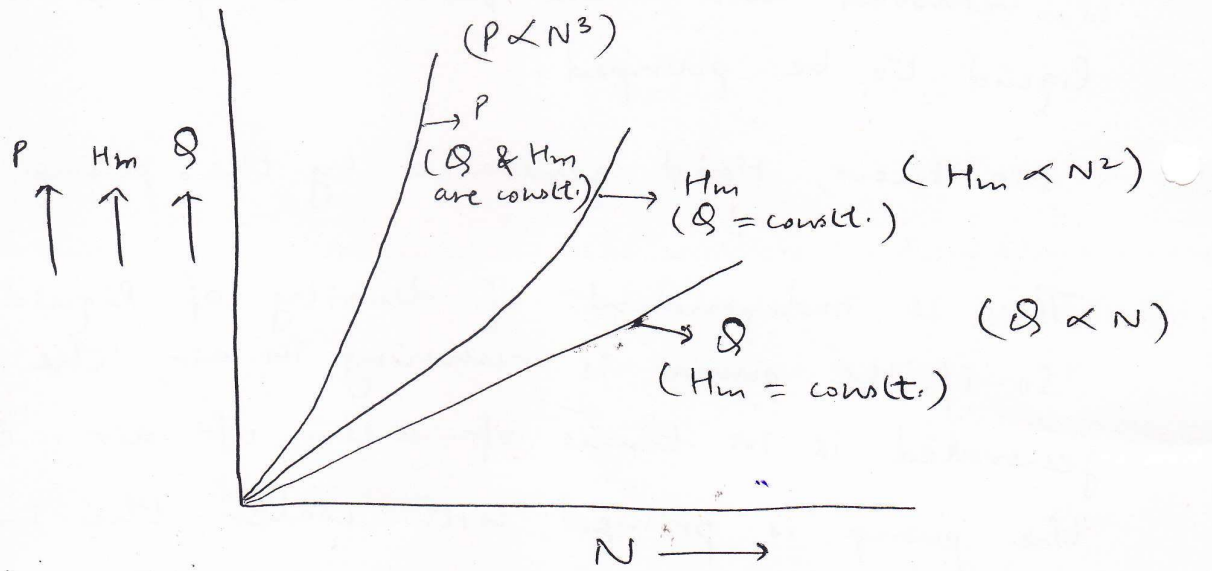 (P ∝ N³)
P
(Q & Hm
are constt.)
P Hm Q
Hm
(Q = constt.)
(Hm ∝ N²)
Q
(Hm = constt.)
(Q ∝ N)
N